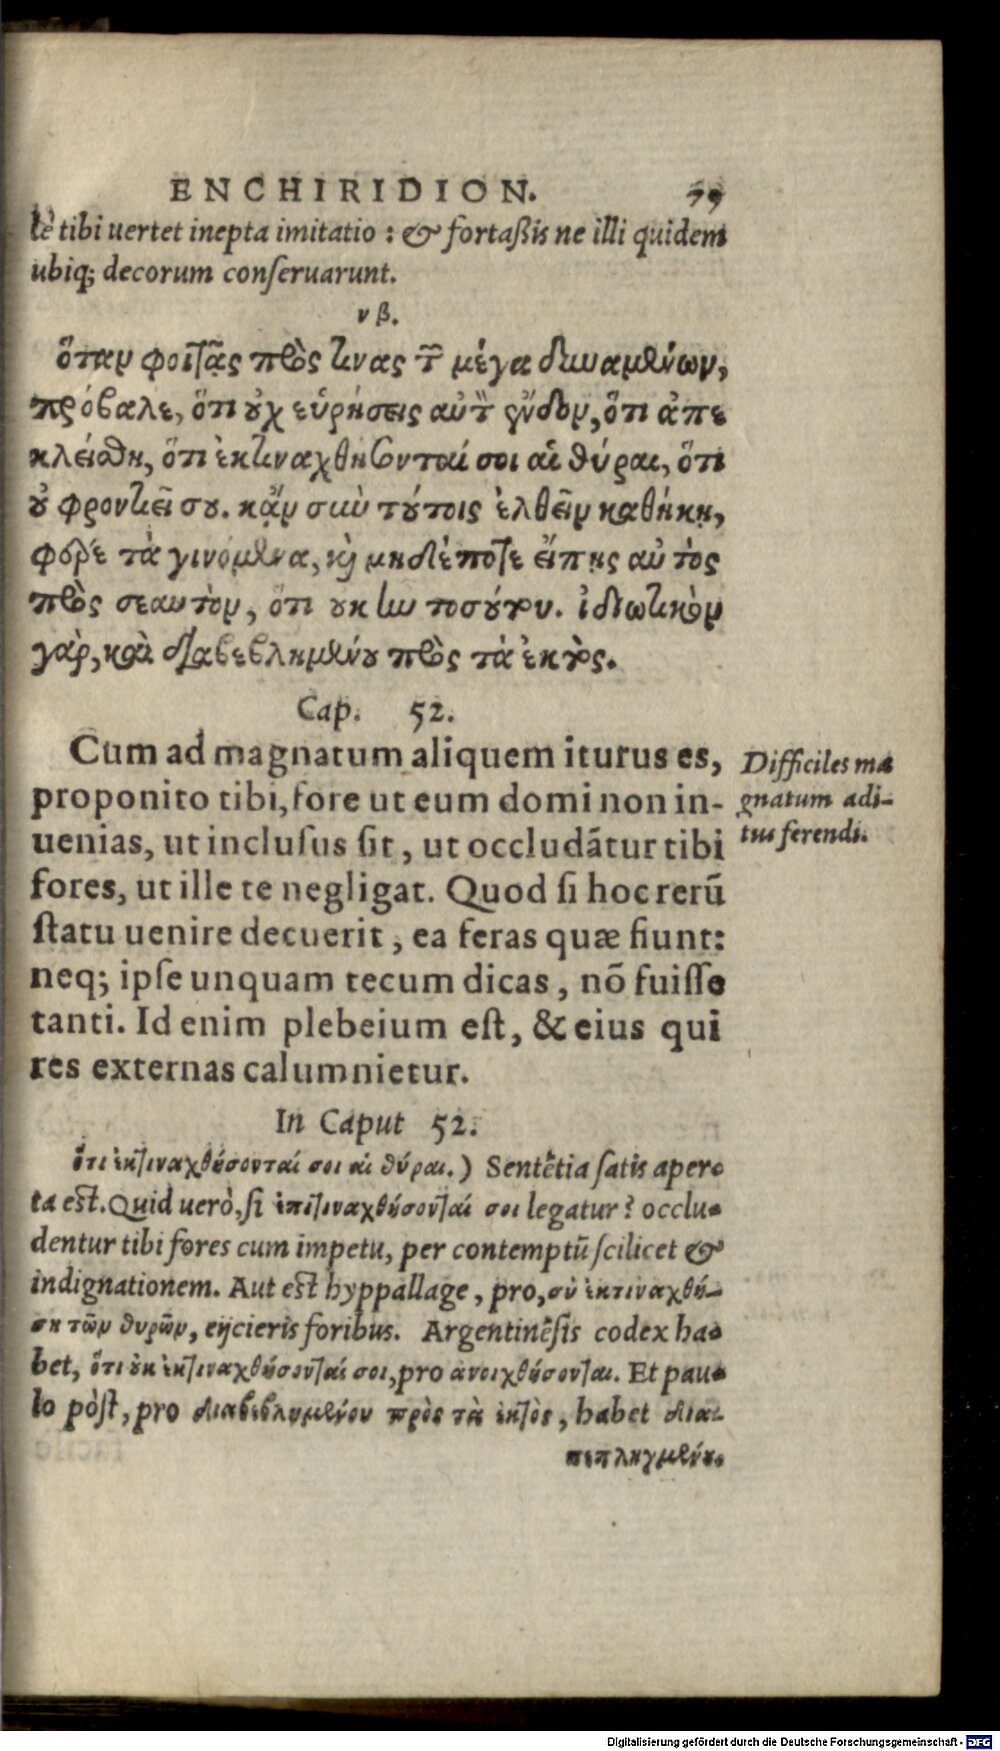 ENCHIRIDION. 79
lè tibi uertet inepta imitatio : & fortaßis ne illi quidem
ubiq; decorum conſeruarunt.
νβ.
ὅταν φοιτᾷς πρὸς τινας τῶν μέγα δυναμένων,
πρόβαλε, ὅτι οὐχ εὑρήσεις αὐτὸν ἔνδον, ὅτι ἀπε
κλείσθη, ὅτι ἐκτιναχθήσονταί σοι αἱ θύραι, ὅτι
οὐ φροντιεῖ σου. κᾂν σὺν τούτοις ἐλθεῖν καθήκῃ,
φέρε τὰ γινόμενα, καὶ μηδέποτε εἴπῃς αὐτὸς
πρὸς σεαυτὸν, ὅτι οὐκ ἦν τοσούτου. ἰδιωτικὸν
γὰρ, καὶ διαβεβλημένου πρὸς τὰ ἐκτός.
Cap. 52.
Cum ad magnatum aliquem iturus es,
proponito tibi, fore ut eum domi non in-
uenias, ut incluſus ſit, ut occludātur tibi
fores, ut ille te negligat. Quod ſi hoc rerū
ſtatu uenire decuerit, ea feras quæ fiunt:
neq; ipſe unquam tecum dicas, nō fuiſſe
tanti. Id enim plebeium eſt, & eius qui
res externas calumnietur.
Difficiles ma
gnatum adi-
tus ferendi.
In Caput 52.
ὅτι ἐκτιναχθήσονταί σοι αἱ θύραι.) Sentētia ſatis aper-
ta eſt. Quid uerò, ſi ἐπιτιναχθήσονταί σοι legatur? occlu-
dentur tibi fores cum impetu, per contemptū ſcilicet &
indignationem. Aut eſt hyppallage, pro, σὺ ἐκτιναχθή-
σῃ τῶν θυρῶν, eijcieris foribus. Argentinēſis codex ha-
bet, ὅτι οὐκ ἐκτιναχθήσονταί σοι, pro ἀνοιχθήσονται. Et pau-
lo pòſt, pro διαβεβλημένου πρὸς τὰ ἐκτὸς, habet δια-
πεπληγμένου.
Digitalisierung gefördert durch die Deutsche Forschungsgemeinschaft - DFG